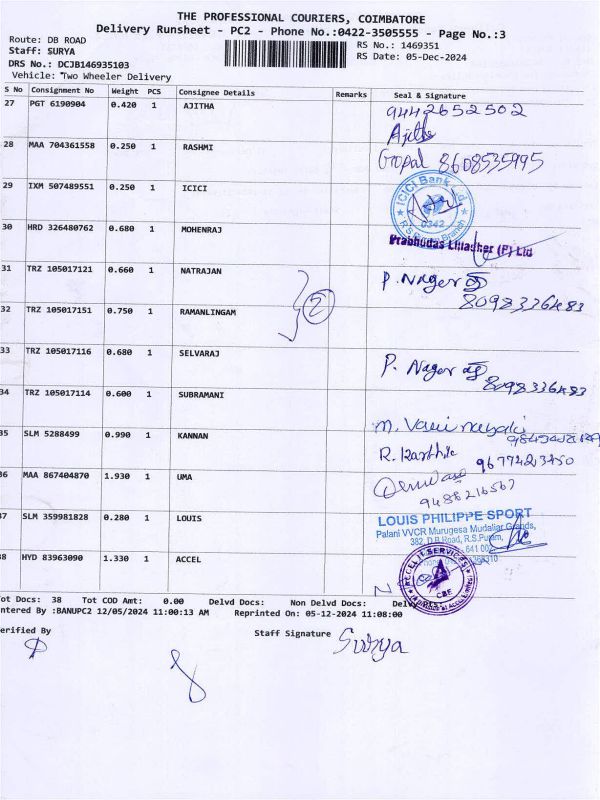 THE PROFESSIONAL COURIERS, COIMBATORE
Delivery Runsheet - PC2 - Phone No.:0422-3505555 - Page No.:3
Route: DB ROAD
RS No.: 1469351
Staff: SURYA
RS Date: 05-Dec-2024
DRS No.: DCJB146935103
Vehicle: Two Wheeler Delivery
S No Consignment No Weight PCS Consignee Details Remarks Seal & Signature
27 PGT 6190904 0.420 1 AJITHA 9442652502
Ajitha
28 MAA 704361558 0.250 1 RASHMI Gopal 8608535995
29 IXM 507489551 0.250 1 ICICI ICICI Bank Ltd 0342
30 HRD 326480762 0.680 1 MOHENRAJ Prabhudas Lilladher (P) Ltd
31 TRZ 105017121 0.660 1 NATRAJAN P. Nagar
8098336483
32 TRZ 105017151 0.750 1 RAMANLINGAM 2
33 TRZ 105017116 0.680 1 SELVARAJ P. Nagar
8098336483
34 TRZ 105017114 0.600 1 SUBRAMANI M. Vani
35 SLM 5288499 0.990 1 KANNAN R. Karthik
9677423450
36 MAA 867404870 1.930 1 UMA
9488216567
37 SLM 359981828 0.280 1 LOUIS LOUIS PHILIPPE SPORT
Palani VVCR Murugesa Mudaliar Grands,
382, D.B.Road, R.S.Puram,
641 002
38 HYD 83963090 1.330 1 ACCEL ACCEL IT SERVICES
CBE
Tot Docs: 38 Tot COD Amt: 0.00 Delvd Docs: Non Delvd Docs:
Entered By :BANUPC2 12/05/2024 11:00:13 AM Reprinted On: 05-12-2024 11:08:00
Verified By
Staff Signature Surya